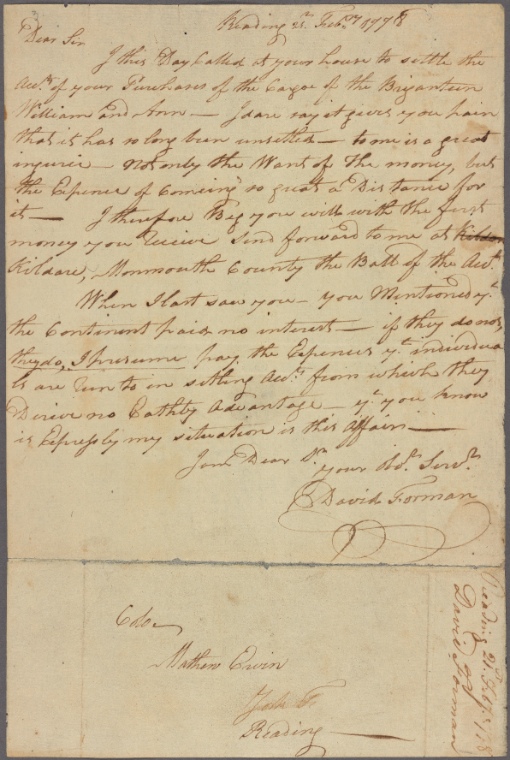 Reading 21st Feby. 1778
Dear Sir
I this Day Called at your house to settle the
Acct. of your Purchases of the Cargoe of the Briganteen
William and Ann — I dare say it gives you pain
that it has so long been unsettled — to me is a great
ingurie — not only the Want of the money, but
the Expence of Comeing so great a Distance for
it — I therefore Beg you will with the first
money you receive Send forward to me at Kildar
Kildare, Monmouth County the Ball of the Acct.
When I last saw you — you Mentioned yt.
the Continent paid no interest — if they do not
they do, I presume pay the Expences yt. individua
ls are run to in setling Acct. from which they
Derive no Earthly Advantage — yt. you know
is Expressly my situation in this Affair —
I am Dear Sr.
your Obt. Servt.
David Forman
Colo.
Mathew Erwin
Reading
Reading 21st Feby. 1778
David Forman